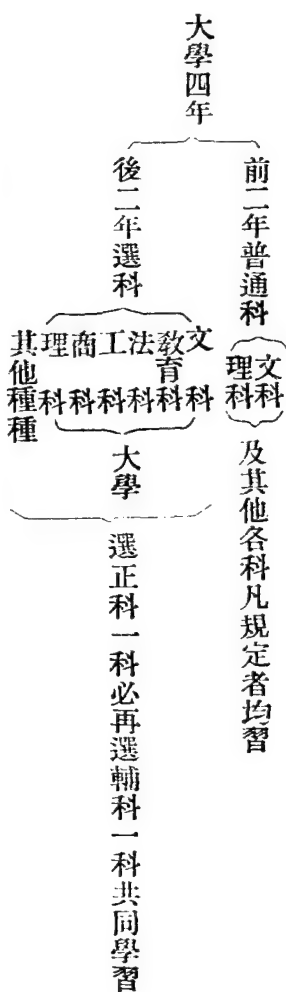 大學四年
前二年普通科
文科
理科
及其他各科凡規定者均習
後二年選科
文科
教育科
法科
工科
商科
理科
其他種種
大學
選正科一科必再選輔科一科共同學習